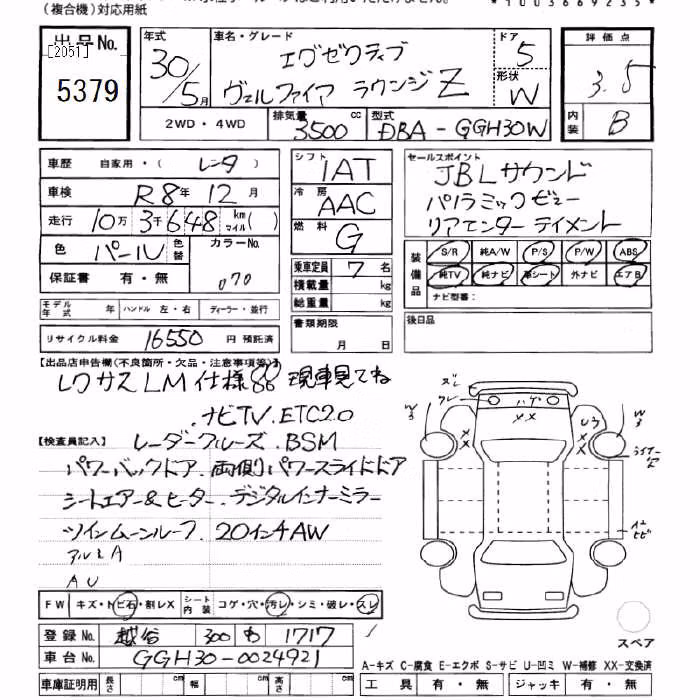 (複合機)対応用紙
*1003669235*
出品No.
[2051]
5379
年式
30/5月
車名・グレード
エグゼクティブ
ヴェルファイア ラウンジZ
ドア
5
形状
W
2WD・4WD
排気量
3500cc
型式
DBA-GGH30W
評価点
3.5
内装
B
車歴 自家用・(レンタ)
車検 R8年 12月
走行 10万3千648 km マイル( )
色 パール 色替 カラーNo. 070
保証書 有・無
モデル年式 年 ハンドル 左・右 ディーラー・並行
リサイクル料金 16550 円 預託済
シフト 1AT
冷房 AAC
燃料 G
乗車定員 7 名
積載量 kg
総重量 kg
書類期限
月 日
セールスポイント
JBLサウンド
パノラミックビュー
リアエンターテイメント
装備品
S/R 純A/W P/S P/W ABS
純TV 純ナビ 革シート 外ナビ エアB
ナビ型番:
後日品
【出品店申告欄(不良箇所・欠品・注意事項等)】
レクサスLM仕様 現車見てね
ナビTV.ETC2.0
【検査員記入】
レーダークルーズ.BSM
パワーバックドア.両側パワースライドドア
シートエアー&ヒーター.デジタルインナーミラー
ツインムーンルーフ.20インチAW
AU
FW キズ・トビ石・割レX シート内装 コゲ・穴・汚レ・シミ・破レ・スレ
登録No. 越谷 300 も 1717
車台No. GGH30-0024921
車庫証明用 長さ cm 幅 cm 高さ cm
スペア
A-キズ C-腐食 E-エクボ S-サビ U-凹ミ W-補修 XX-交換済
工具 有・無 ジャッキ 有・無